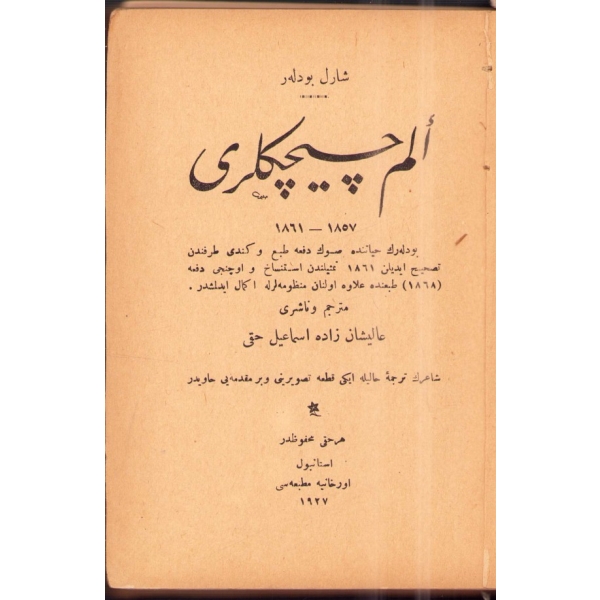 شارل بودلەر
ألم چیچکلری
١٨٥٧ — ١٨٦١
بودلەرك حیاتنده صوك دفعه طبع و کندی طرفندن
تصحیح ایدیلن ١٨٦١ تمثیلندن استنساخ و اوچنجی دفعه
(١٨٦٨) طبعنده علاوه اولنان منظومه‌لرله اکمال ایدلشدر .
مترجم و ناشری
عالیشان زاده اسماعیل حقی
شاعرك ترجمهٔ حالیله ایکی قطعه تصویرینی و بر مقدمه‌یی حاویدر
هر حقی محفوظدر
استانبول
اورخانیه مطبعه‌سی
١٩٢٧